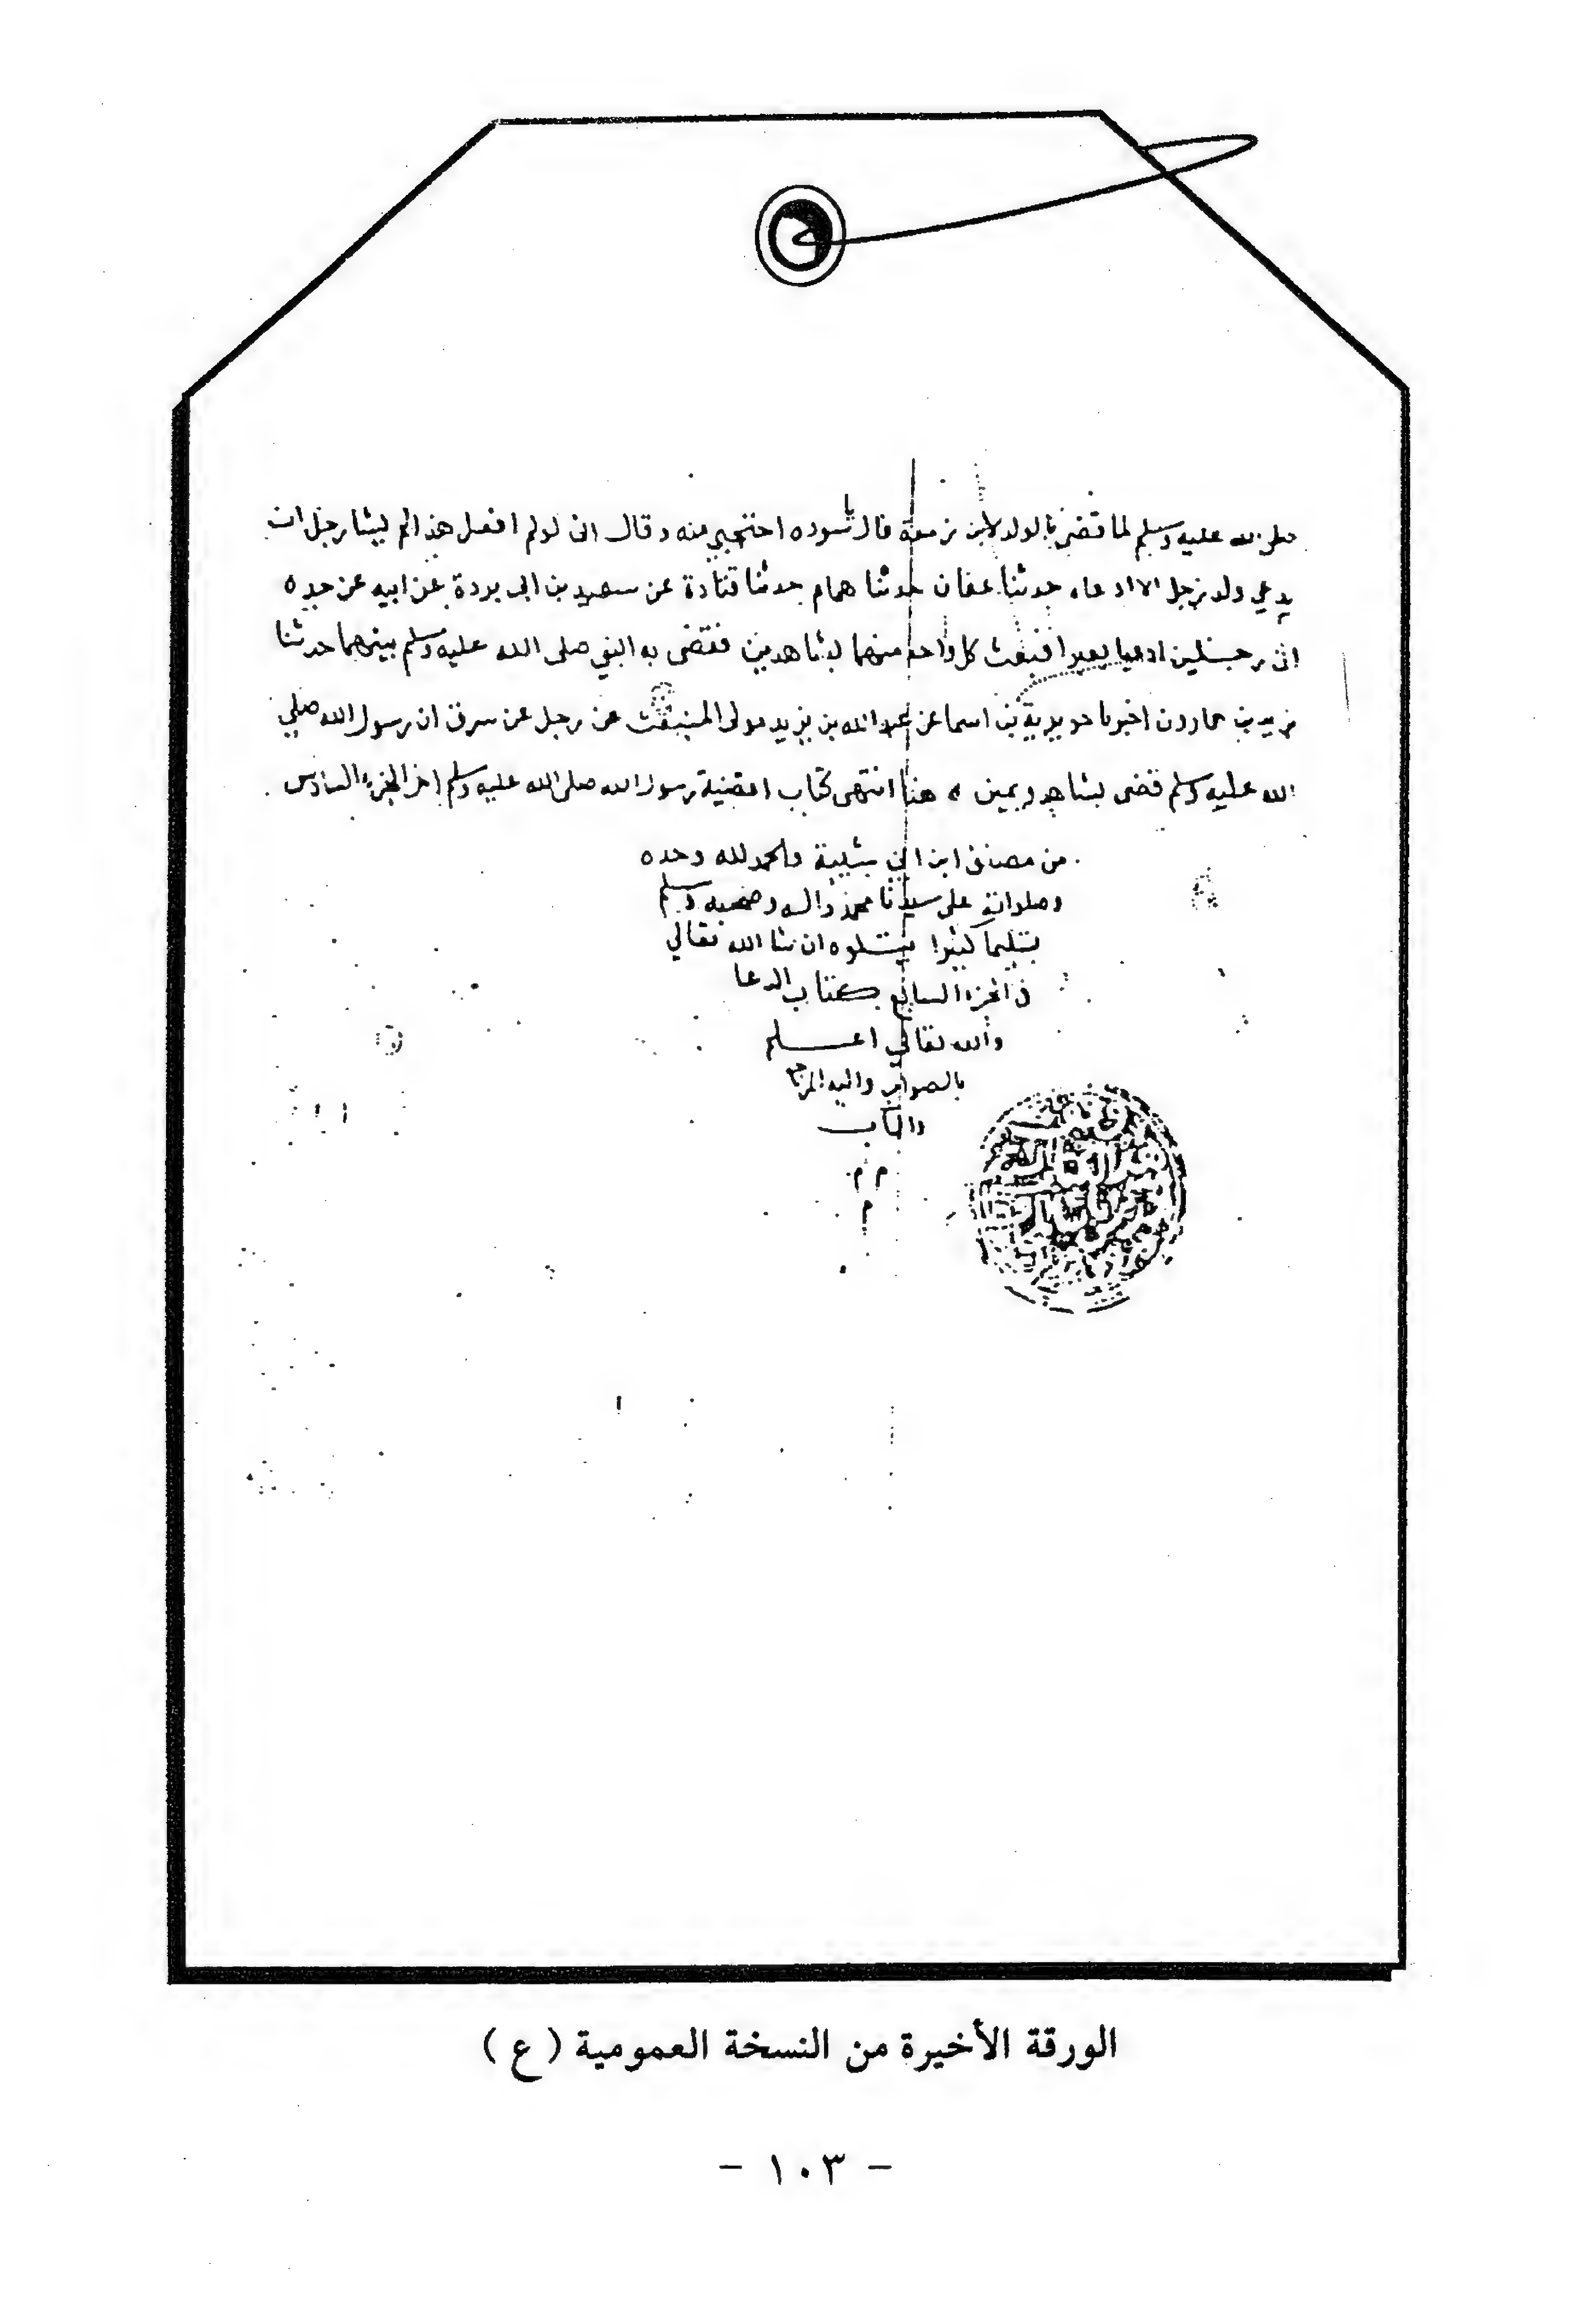 صلى الله عليه وسلم لما قضى بالولد لابن زمعة قال يا سوده احتجبي منه وقال اني لو لم افعل هذا لم يشا رجل ان
يدعي ولد رجل الا ادعاه حدثنا عفان حدثنا همام حدثنا قتادة عن سعيد بن ابي بردة عن ابيه عن جده
ان رجلين ادعيا بعيرا فبعث كل واحد منهما بشاهدين فقضى به النبي صلى الله عليه وسلم بينهما حدثنا
يزيد بن هارون اخبرنا جويرية بن اسما عن عبد الله بن يزيد مولى المنبعث عن رجل عن سرق ان رسول الله صلى
الله عليه وسلم قضى بشاهد ويمين ه هنا انتهى كتاب اقضية رسول الله صلى الله عليه وسلم اخر الجزء السادس
من مصنف ابن ابي شيبة والحمد لله وحده
وصلواته على سيدنا محمد واله وصحبه وسلم
تسليما كثيرا يتلوه ان شا الله تعالي
في الجزء السابع كتاب الدعا
والله تعالي اعلم
بالصواب واليه المرجع
والماب
م م
م
الورقة الأخيرة من النسخة العمومية ( ع )
- ١٠٣ -